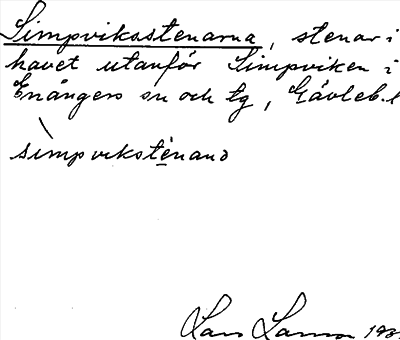 Simpviksstenarna, stenar i
havet utanför Simpviken i
Enångers sn och tg, Gävleb. l
simpvikstenana
Lars Larsson 193